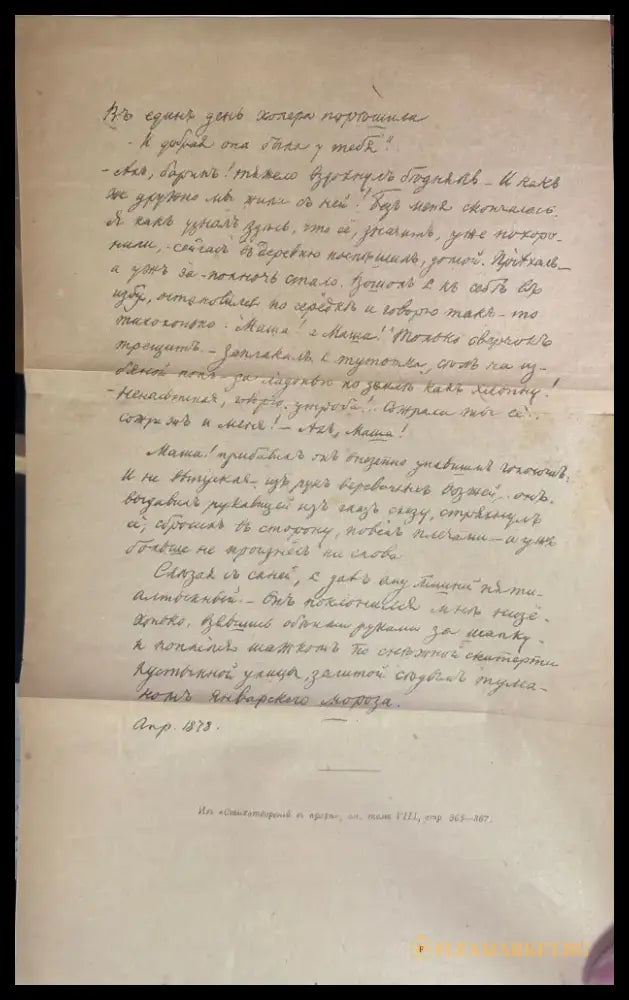 Въ единъ день холера порѣшила
- И добрая она была у тебя?"
- Ахъ, баринъ! тяжело вздохнулъ бѣднякъ - И какъ
же дружно мы жили съ ней! Безъ меня скончалась.
Я какъ узналъ здѣсь, что её, значитъ, уже похоро-
нили, - сейчасъ въ деревню поспѣшилъ, домой. Пріѣхалъ -
а ужъ за-полночь стало. Вошолъ я къ себѣ въ
избу, остановился по серёдкѣ и говорю такъ-то
тихохонько: "Маша! а Маша!" Только сверчокъ
трещитъ. - Заплакалъ я тутотка, сѣлъ на из-
бяной полъ - да ладонью по землѣ какъ хлопну!
- Ненасытная, говорю, утроба!.. Сожрала ты её..
сожри жъ и меня! - Ахъ, Маша!
Маша! прибавилъ онъ внезапно упавшимъ голосомъ.
И не выпуская изъ рукъ веревочныхъ возжей, онъ
выдавилъ рукавицей изъ глазъ слезу, стряхнулъ
её, сбросилъ въ сторону, повелъ плечами - и ужъ
больше не произнёсъ ни слова
Слѣзая съ саней, я далъ ему лишній пяти-
алтынный. Онъ поклонился мнѣ низё-
хонько, взявшись обѣими руками за шапку -
и поплёлся шажкомъ по снѣжной скатерти
пустынной улицы, залитой сѣдымъ тума-
номъ январскаго мороза.
Апр. 1878.
Изъ «Стихотвореній в прозѣ», см. томъ VIII, стр. 365—367.
FLEAMARKET.BG